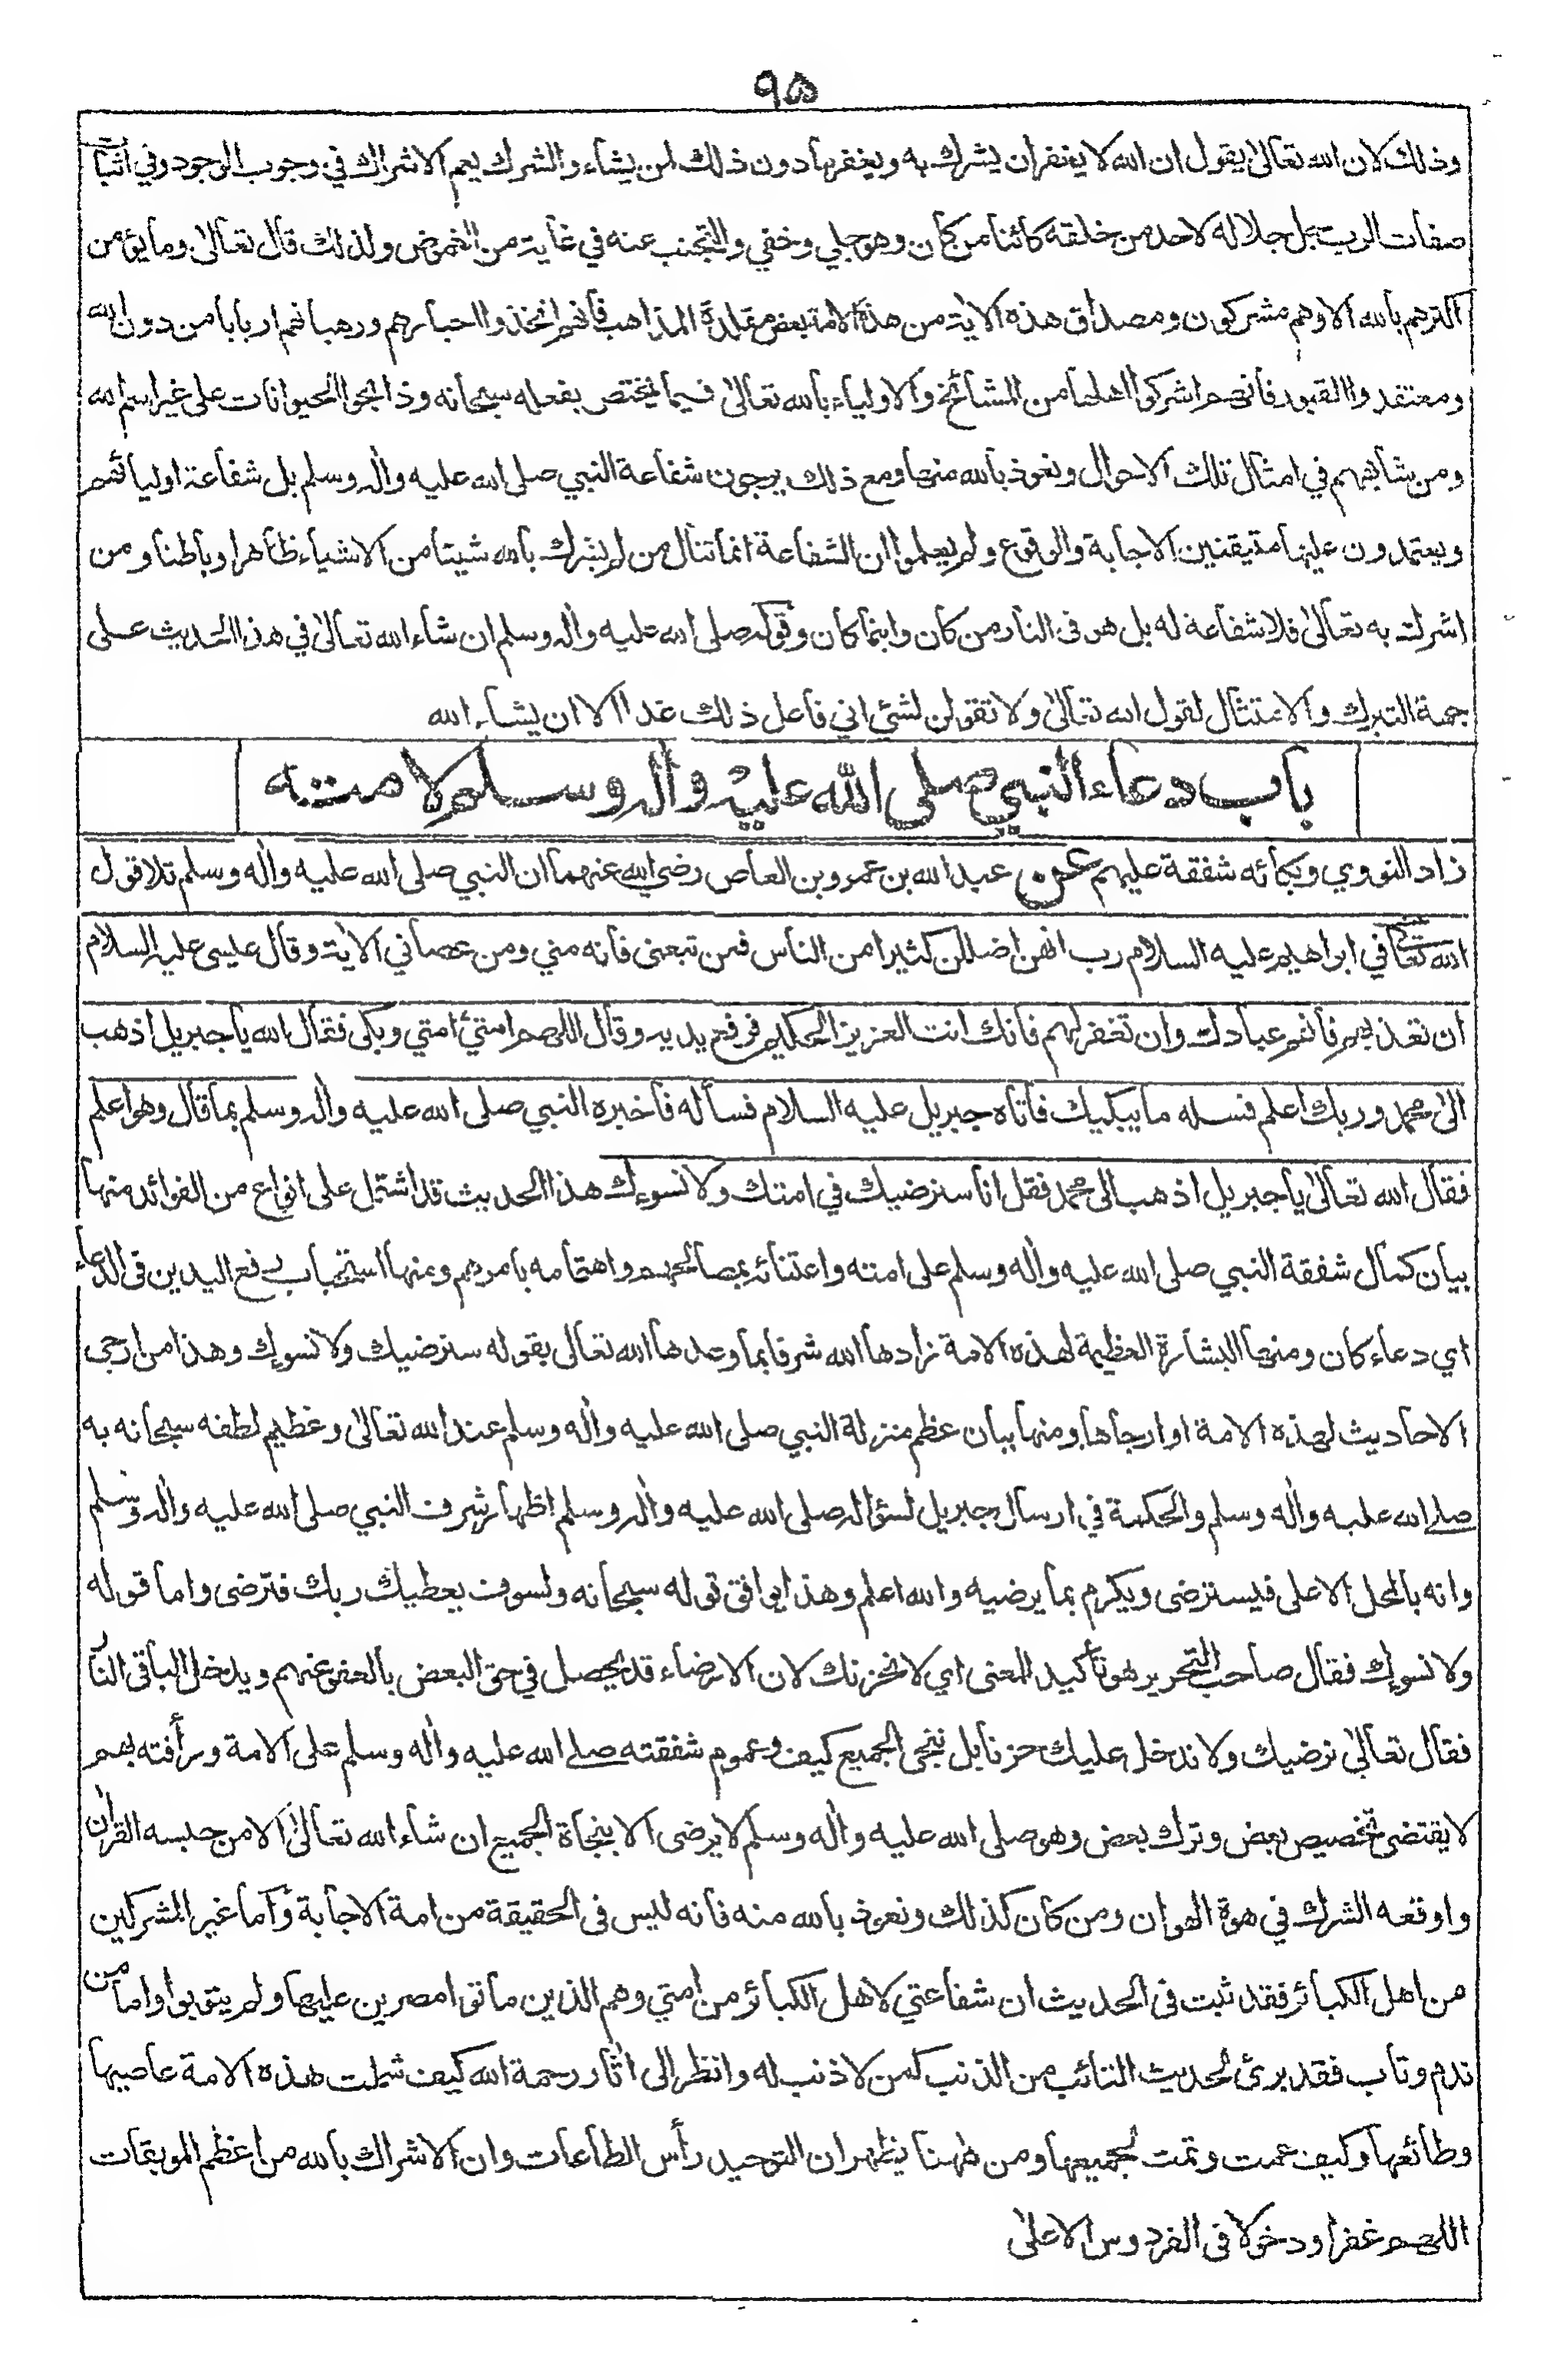 ٩٥
وذلك لان الله تعالىٰ يقول ان الله لا يغفر ان يشرك به ويغفر ما دون ذلك لمن يشاء والشرك يعم الاشراك في وجوب الوجود وفي اثبات
صفات الرب جل جلاله لاحد من خلقه كائنا من كان وهو جلي وخفي والتجنب عنه في غاية من الغموض ولذلك قال تعالىٰ وما يؤمن
اكثرهم بالله الا وهم مشركون ومصداق هذه الاية من هذه الامة بعض مقلدة المذاهب فانهم اتخذوا احبارهم ورهبانهم اربابا من دون الله
ومعتقدوا القبور فانهم اشركوا اهلها من المشائخ والاولياء بالله تعالىٰ فيما يختص بفعله سبحانه وذابحوا الحيوانات على غير اسم الله
ومن شابههم في امثال تلك الاحوال ونعوذ بالله منها ومع ذلك يرجون شفاعة النبي صلى الله عليه واٰله وسلم بل شفاعة اوليائهم
ويعتمدون عليها متيقنين الاجابة والوقوع ولم يعلموا ان الشفاعة انما تنال من لم يشرك بالله شيئا من الاشياء ظاهرا وباطنا ومن
اشرك به تعالىٰ فلا شفاعة له بل هو في النار من كان واينما كان وقوله صلى الله عليه واٰله وسلم ان شاء الله تعالىٰ في هذا الحديث على
جهة التبرك والامتثال لقول الله تعالىٰ ولا تقولن لشئ اني فاعل ذلك غدا الا ان يشاء الله
باب دعاء النبي صلى الله عليه واٰله وسلم لامته
زاد النووي وبكائه شفقة عليهم عن عبد الله بن عمرو بن العاص رضي الله عنهما ان النبي صلى الله عليه واٰله وسلم تلا قول
الله تعالى في ابراهيم عليه السلام رب انهن اضللن كثيرا من الناس فمن تبعني فانه مني ومن عصاني الاية وقال عيسى عليه السلام
ان تعذبهم فانهم عبادك وان تغفر لهم فانك انت العزيز الحكيم فرفع يديه وقال اللهم امتي امتي وبكى فقال الله يا جبريل اذهب
الىٰ محمد وربك اعلم فسله ما يبكيك فاتاه جبريل عليه السلام فسأله فاخبره النبي صلى الله عليه واٰله وسلم بما قال وهو اعلم
فقال الله تعالىٰ يا جبريل اذهب الى محمد فقل انا سنرضيك في امتك ولا نسوءك هذا الحديث قد اشتمل على انواع من الفوائد منها
بيان كمال شفقة النبي صلى الله عليه واٰله وسلم على امته واعتنائه بمصالحهم واهتمامه بامرهم ومنها استحباب رفع اليدين في الدعاء
اي دعاء كان ومنها البشارة العظيمة لهذه الامة زادها الله شرفا بما وعدها الله تعالى بقوله سنرضيك ولا نسوءك وهذا من ارجى
الاحاديث لهذه الامة او ارجاها ومنها بيان عظم منزلة النبي صلى الله عليه واٰله وسلم عند الله تعالىٰ وعظيم لطفه سبحانه به
صلى الله عليه واٰله وسلم والحكمة في ارسال جبريل لسؤاله صلى الله عليه واٰله وسلم اظهار شرف النبي صلى الله عليه واٰله وسلم
وانه بالمحل الاعلى فيسترضى ويكرم بما يرضيه والله اعلم وهذا يوافق قوله سبحانه ولسوف يعطيك ربك فترضى واما قوله
ولا نسوءك فقال صاحب التحرير هو تأكيد المعنى اي لا نحزنك لان الارضاء قد يحصل في حق البعض بالعفو عنهم ويدخل الباقي النار
فقال تعالىٰ نرضيك ولا ندخل عليك حزنا بل ننجي الجميع كيف وعموم شفقته صلى الله عليه واٰله وسلم على الامة ورأفته بهم
لا يقتضي تخصيص بعض وترك بعض وهو صلى الله عليه واٰله وسلم لا يرضى الا بنجاة الجميع ان شاء الله تعالىٰ الا من حبسه القراٰن
واوقعه الشرك في هوة الهوان ومن كان كذلك ونعوذ بالله منه فانه ليس في الحقيقة من امة الاجابة واما غير المشركين
من اهل الكبائر فقد ثبت في الحديث ان شفاعتي لاهل الكبائر من امتي وهم الذين ماتوا مصرين عليها ولم يتوبوا واما من
ندم وتاب فقد برئ لحديث التائب من الذنب كمن لا ذنب له وانظر الى اٰثار رحمة الله كيف شملت هذه الامة عاصيها
وطائعها وكيف عمت وتمت لجميعها ومن ههنا يظهر ان التوحيد رأس الطاعات وان الاشراك بالله من اعظم الموبقات
اللهم غفرا ودخولا في الفردوس الاعلىٰ